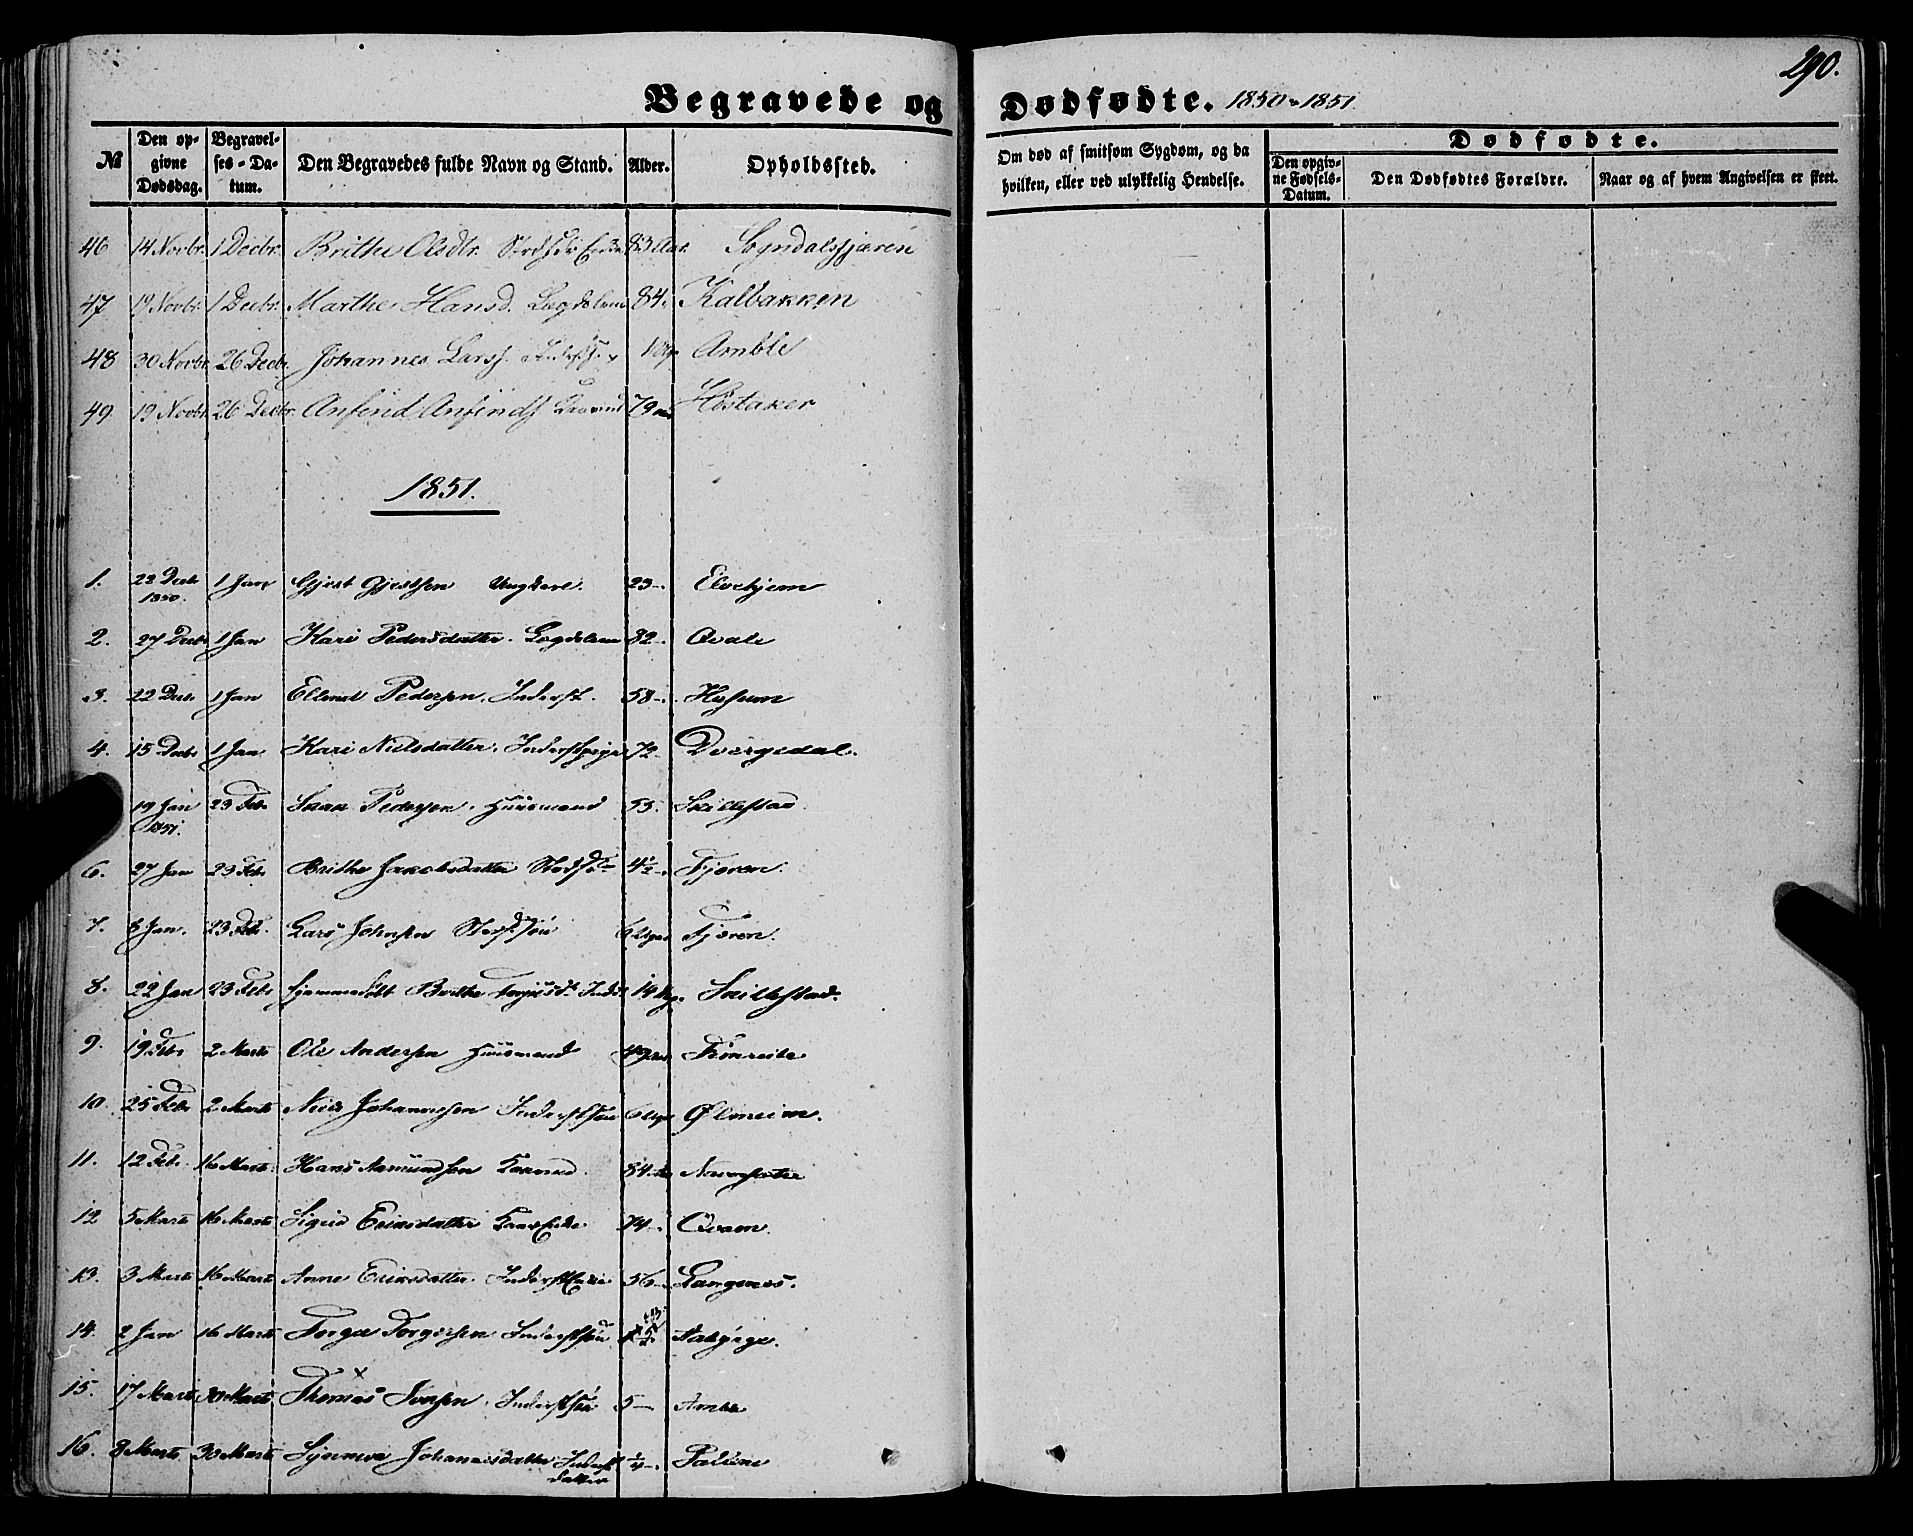 290.
Begravede og Dødfødte. 1850-1851
№ Den opgivne Dødsdag. Begravelses-Datum. Den Begravedes fulde Navn og Stand. Alder. Opholdssted. Om død af smitsom Sygdom, og da hvilken, eller ved ulykkelig Hendelse. Dødfødte.
Den opgivne Fødsels-Datum. Den Dødfødtes Forældre. Naar og af hvem Angivelsen er skeet.
46 14 Novbr. 1 Decbr. Brithe Olsdtr. 83 Aar. Sogndalsfjæren
47 19 Novbr. 1 Decbr. Marthe Hansd. Lægdslem 84. Kalbakken
48 30 Novbr. 26 Decbr. Johannes Lars. Amble
49 19 Novbr. 26 Decbr. Anfind Anfinds. 79 Høstaker
1851.
1. 23 Decbr 1850. 1 Jan Gjest Gjestsen Ungkarl. 23 Elvehjem
2. 27 Decbr 1 Jan Kari Pedersdatter. Lægdslem 82 Qvale
3. 22 Decbr 1 Jan Ellend Pedersen. Inderst. 58 Husum
4. 15 Decbr 1 Jan Kari Nielsdatter. 72 Dvergedal.
19 Jan 1851. 23 Feb Pedersen. Huusmand 55. Skillestad
6. 27 Jan 23 Feb Brithe Jakobsdatter 4½ Fjæren.
7. 8 Jan. 23 Feb. Lars Johnsen 6 Uger Fjæren.
8. 22 Jan 23 Feb. Hjemmedøbt Brithe 14 Skillestad.
9. 19 Feb 2 Marts Ole Andersen Huusmand 49 Fimreite
10. 25 Feb 2 Marts Niels Johannesen Inderstsøn 6 Uger Ølmeim.
11. 12 Feb. 16 Marts Hans Asmundsen 84 Navarsete
12 5 Marts 16 Marts Sigrid Eriksdatter 74 Qvam.
13. 3 Marts 16 Marts Anne Eriksdatter. Inderst 56 Langenes.
14. 2 Jan 16 Marts Torger Torgersen Inderstsøn Aabøge.
15. 17 Marts 30 Marts Thomas Iversen. Inderstsøn 5 Amble
16. 8 Marts 30 Marts Johannesdatter Inderst datter ¼